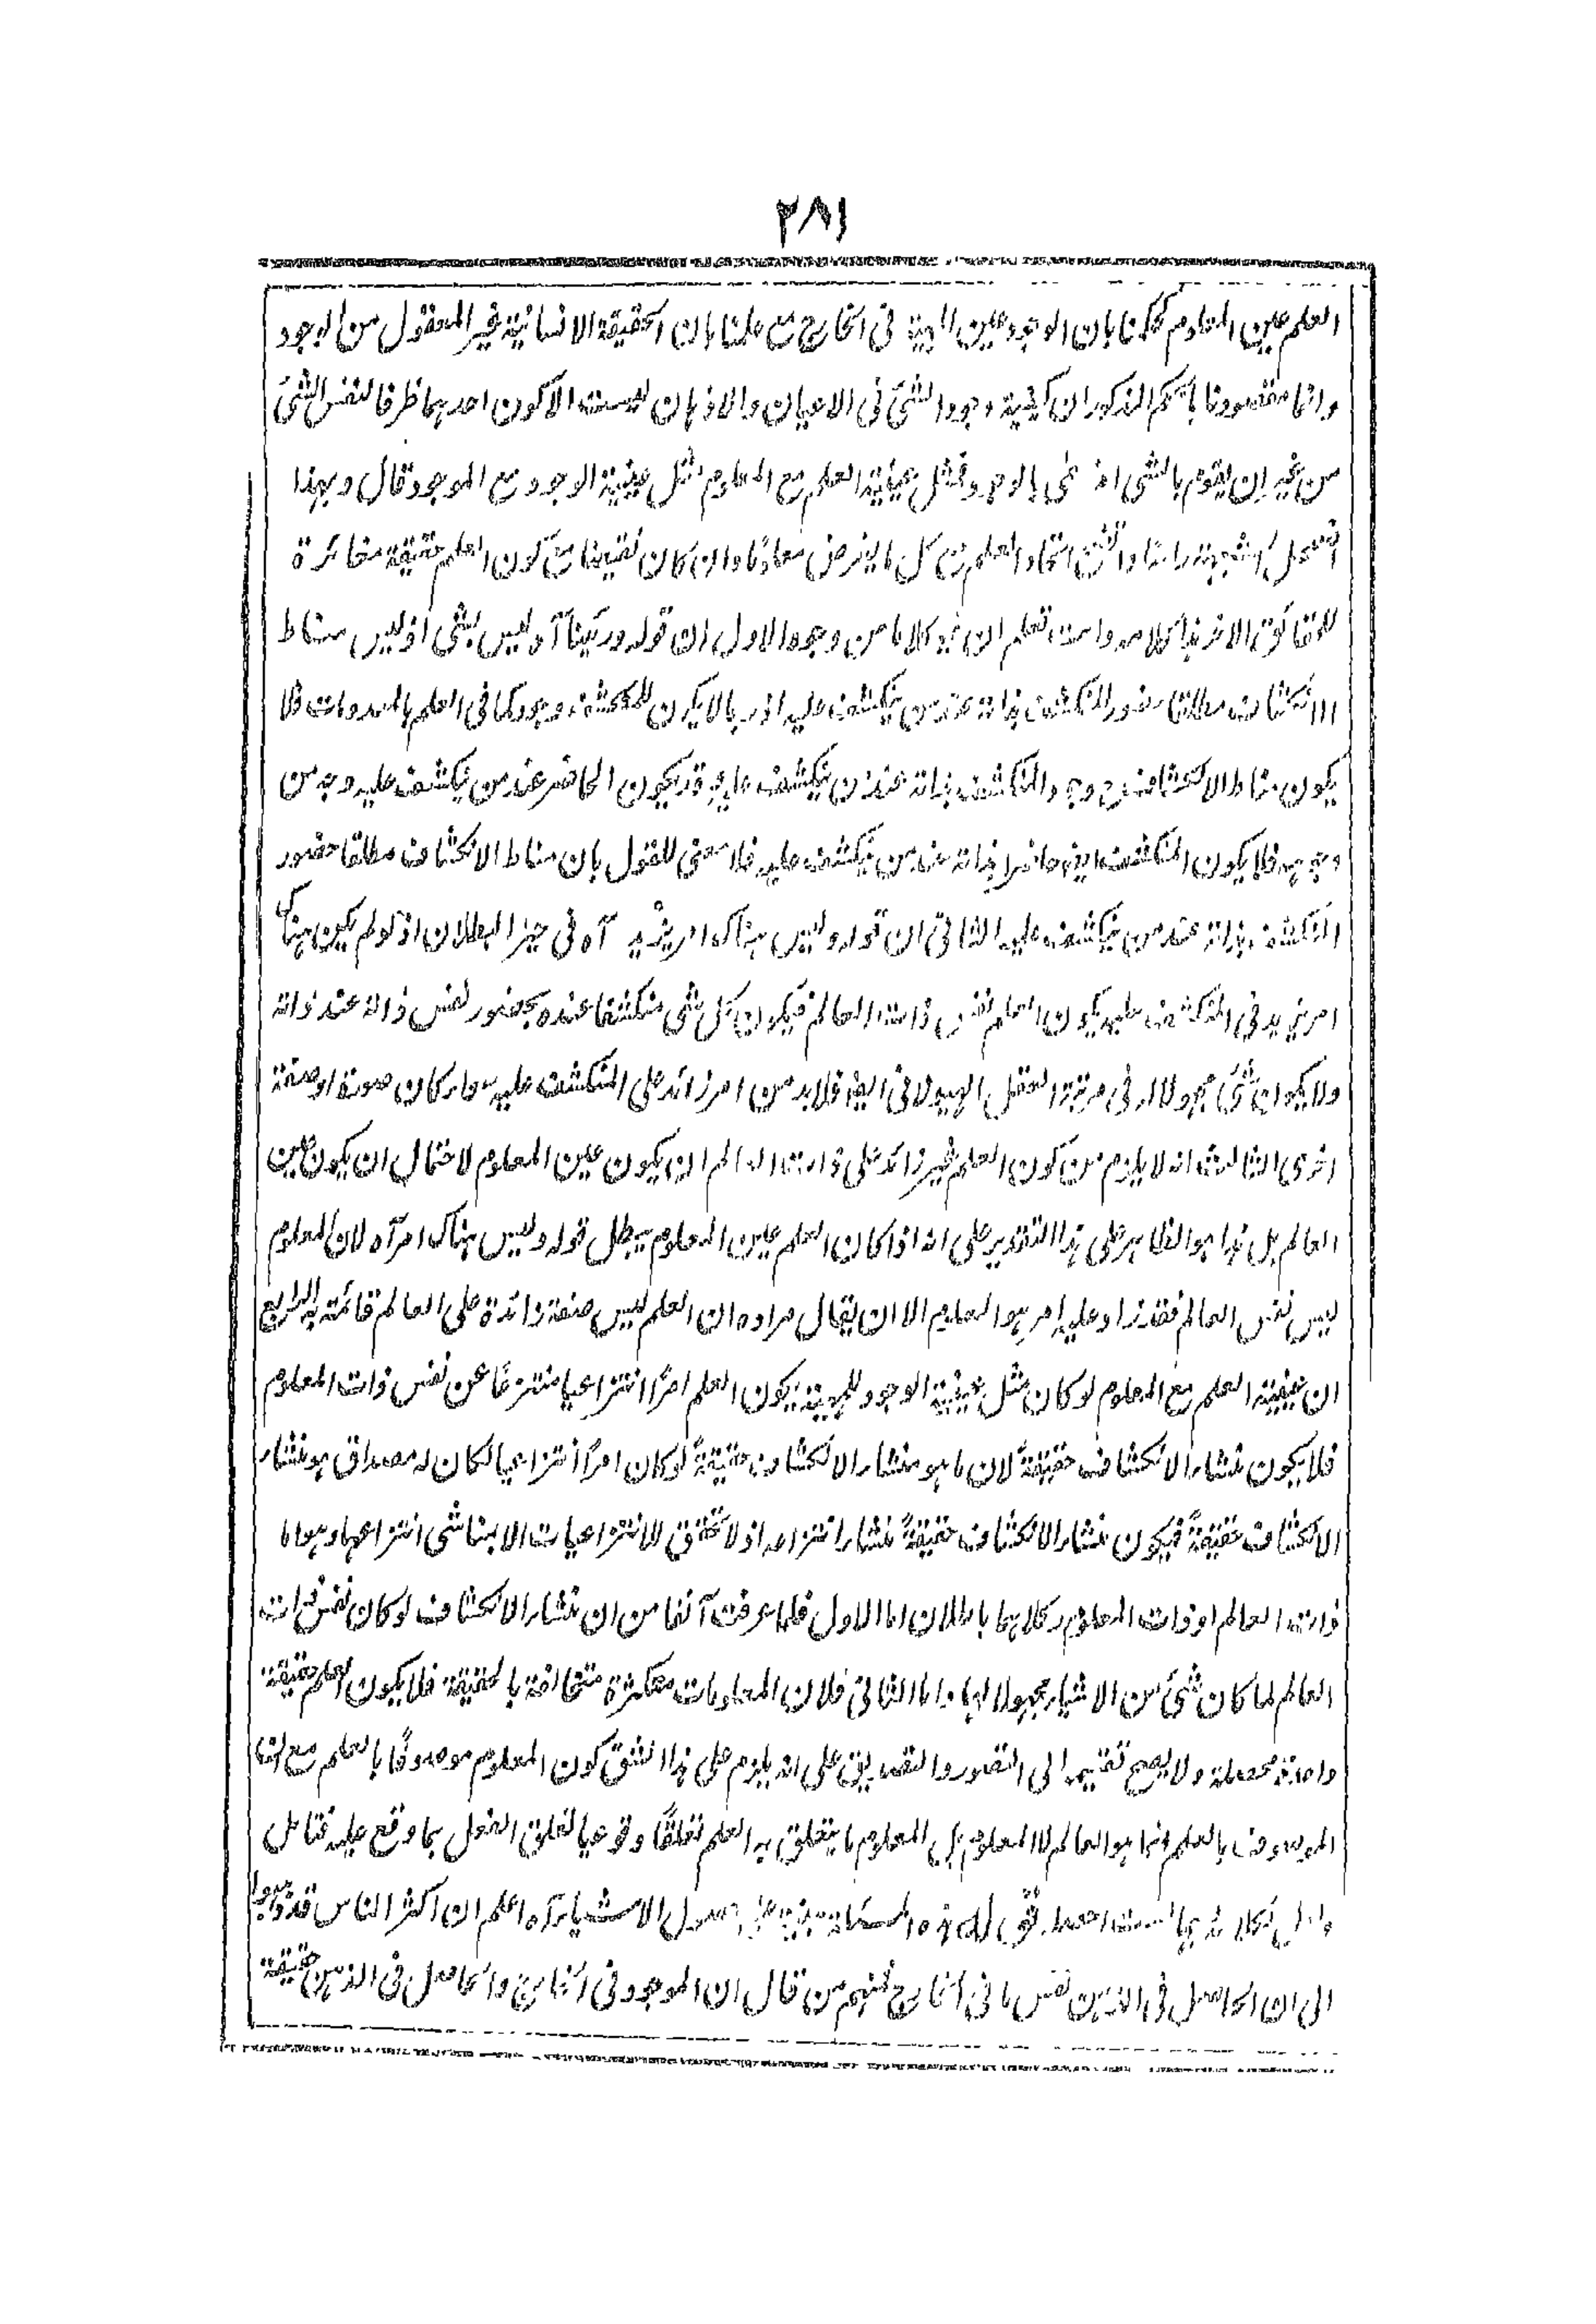 ٢٨١
العلم عين المعلوم كحكمنا بان الوجود عين المهية فى الخارج مع علمنا بان الحقيقة الانسانية غير المعقول من الوجود
وانما مقصودنا بالحكم المذكور ان كيفية وجود الشئ فى الاعيان والاذهان ليست الا كون احدهما ظرفا لنفس الشئ
من غير ان يقوم بالشى امر يسمى بالوجود فمثل عينية العلم مع المعلوم مثل عينية الوجود مع الموجود قال وبهذا
اتحاد العلم مع كل ما يفرض معلوما وان كان نقيضا مع كون العلم حقيقة مغائرة
للحقائق الاخر هذا كلامه وانت تعلم ان فيه كلاما من وجوه الاول ان قوله ورئينا آه ليس بشى اذ ليس مناط
الانكشاف مطلقا حضور المنكشف بذاته عند من ينكشف عليه اذ ربما لا يكون للمنكشف وجود كما فى العلم بالمعدومات فلا
يكون مناط الانكشاف وجود المنكشف بذاته عند من ينكشف عليه وقد يكون الحاضر عند من ينكشف عليه وجه من
وجوهه فلا يكون المنكشف ايضا حاضرا بذاته عند من ينكشف عليه فلا معنى للقول بان مناط الانكشاف مطلقا حضور
المنكشف بذاته عند من ينكشف عليه الثانى ان قوله وليس هناك امر يزيد آه فى حيز البطلان اذ لو لم يكن هناك
امر يزيد فى المنكشف عليه يكون العلم نفس ذات العالم فيكون كل شى منكشفا عنده بحضور نفس ذاته عند ذاته
ولا يكون شئ مجهولا له فى مرتبة العقل الهيولانى ايضا فلابد من امر زائد على المنكشف عليه سواء كان صورة او صفة
اخرى الثالث انه لا يلزم من كون العلم غير زائد على ذات العالم ان يكون عين المعلوم لاحتمال ان يكون عين
العالم بل هذا هو الظاهر على هذا التقدير على انه اذا كان العلم عين المعلوم يبطل قوله وليس هناك امر آه لان المعلوم
ليس نفس العالم فقد زاد عليه امر هو المعلوم الا ان يقال مراده ان العلم ليس صفة زائدة على العالم قائمة به الرابع
ان عينية العلم مع المعلوم لو كان مثل عينية الوجود للمهية يكون العلم امرًا انتزاعيا منتزعًا عن نفس ذات المعلوم
فلا يكون منشاء الانكشاف حقيقةً لان ما هو منشاء الانكشاف حقيقةً لو كان امرًا انتزاعيا لكان له مصداق هو منشاء
الانكشاف حقيقةً فيكون منشاء الانكشاف حقيقةً منشاء انتزاعه اذ لا تحقق للانتزاعيات الا بمناشى انتزاعها وهو اما
ذات العالم او ذات المعلوم وكلاهما باطلان اما الاول فلما عرفت آنفا من ان منشاء الانكشاف لو كان نفس ذات
العالم لما كان شئ من الاشياء مجهولا لها واما الثانى فلان المعلومات متكثرة متخالفة بالحقيقة فلا يكون العلم حقيقة
واحدة محصلة ولا يصح تقسيمه الى التصور والتصديق على انه يلزم على هذا الشق كون المعلوم موصوفًا بالعلم مع ان
الموصوف بالعلم انما هو العالم لا المعلوم بل المعلوم ما يتعلق به العلم تعلقًا وقوعيا كتعلق الفعل بما وقع عليه فتامل
قوله هذه المسئلة مبنية على حصول الاشياء آه اعلم ان اكثر الناس قد ذهبوا
الى ان الحاصل فى الذهن نفس ما فى الخارج فمنهم من قال ان الموجود فى الخارج والحاصل فى الذهن حقيقة